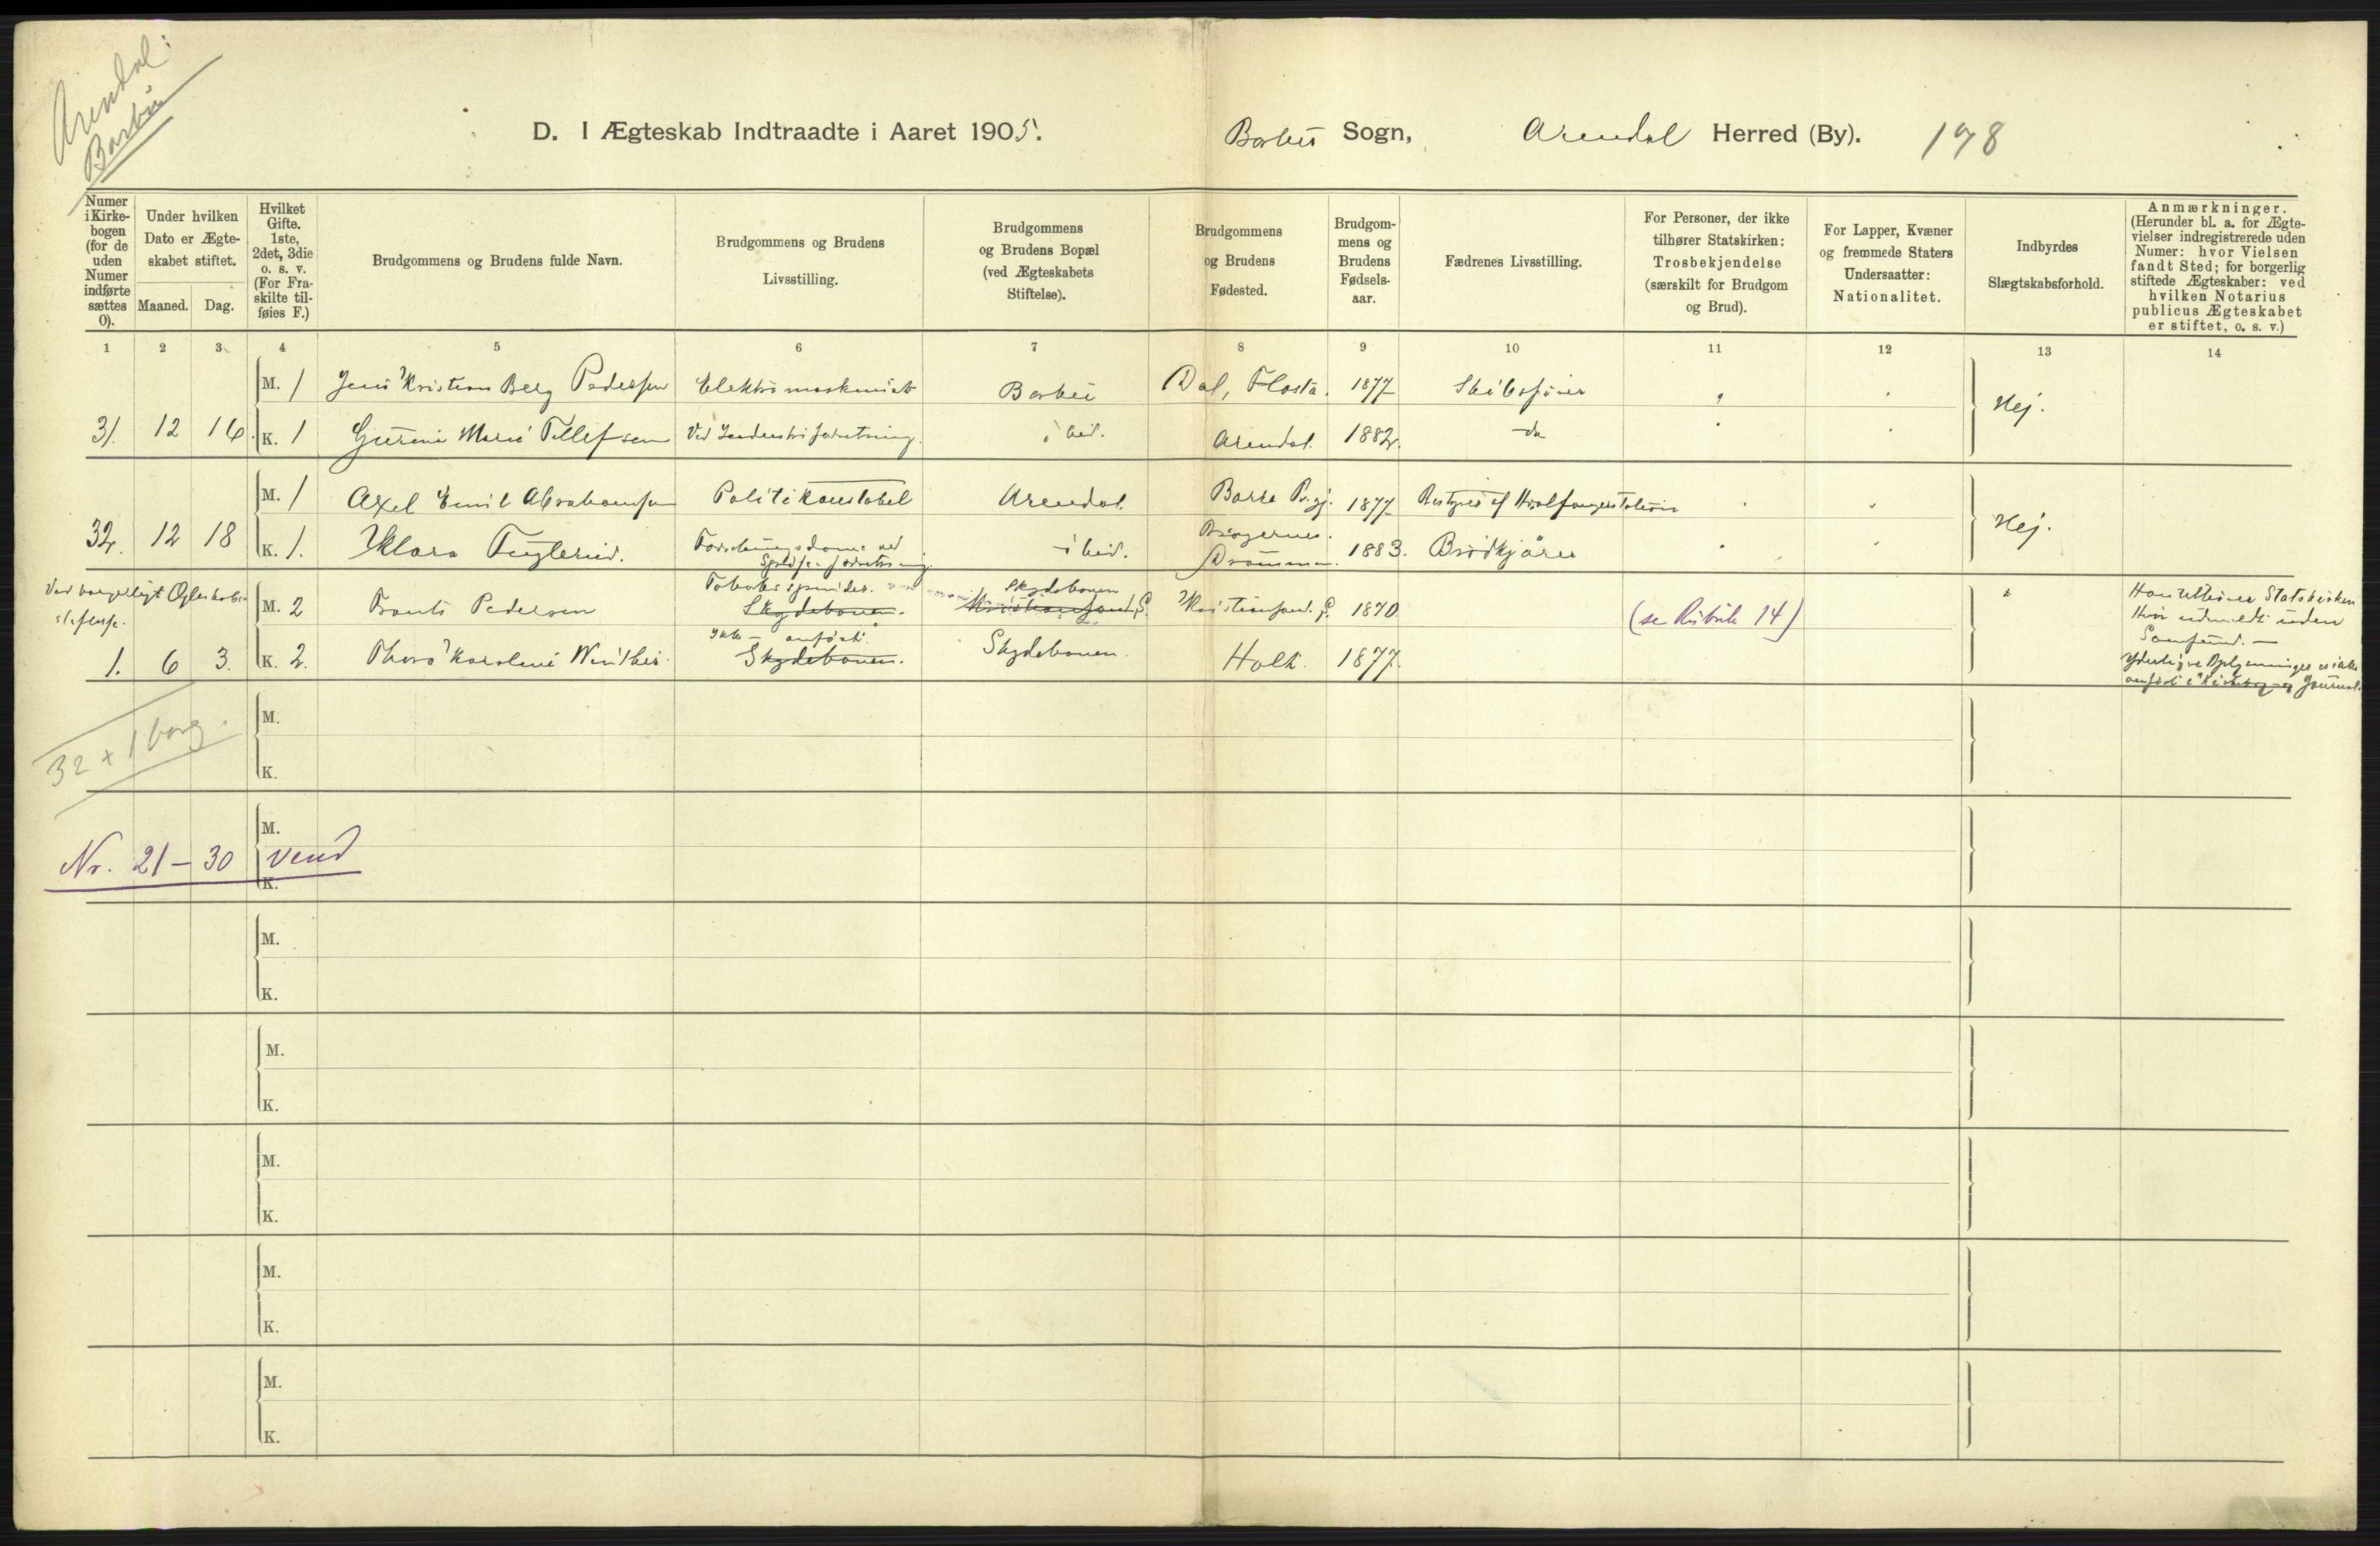 Arendal:
Barbu
D. I Ægteskab Indtraadte i Aaret 1905.
Barbu Sogn, Arendal Herred (By). 198
Numer i Kirkebogen (for de uden Numer indførte sættes 0).
Under hvilken Dato er Ægteskabet stiftet.
Maaned. Dag.
Hvilket Gifte. 1ste, 2det, 3die o. s. v. (For Fraskilte tilføies F.)
Brudgommens og Brudens fulde Navn.
Brudgommens og Brudens Livsstilling.
Brudgommens og Brudens Bopæl (ved Ægteskabets Stiftelse).
Brudgommens og Brudens Fødested.
Brudgommens og Brudens Fødselsaar.
Fædrenes Livsstilling.
For Personer, der ikke tilhører Statskirken: Trosbekjendelse (særskilt for Brudgom og Brud).
For Lapper, Kvæner og fremmede Staters Undersaatter: Nationalitet.
Indbyrdes Slægtskabsforhold.
Anmærkninger. (Herunder bl. a. for Ægtevielser indregistrerede uden Numer: hvor Vielsen fandt Sted; for borgerlig stiftede Ægteskaber: ved hvilken Notarius publicus Ægteskabet er stiftet, o. s. v.)
1 2 3 4 5 6 7 8 9 10 11 12 13 14
M. 1 Jens Kristian Berg Pedersen Elektromaskinist Barbu Dal, Flosta. 1877 Skibsfører
31. 12 16. K. 1 Gurine Marie Tellefsen Ved Industriforretning. ibid. Arendal. 1882. do Nej.
M. 1 Axel Emil Abrahamsen Politikonstabel Arendal. Borre Prgj. 1877 Bestyrer af Hvalfangerstation
32. 12 18 K. 1. Klara Fuglerud. Forretningsdame ved ibid. Bragernes. Drammen. 1883. Brødkjører Nej.
Ved borgerligt Ægteskabs stiftelse.
M. 2 Frants Pedersen Tobakspinder. Skydebanen. Skydebanen Kristiansand. S. Kristiansand. S. 1870 (se Rubrik 14)
1. 6 3. K. 2. Thora Karoline Winther. Ikke anført. Skydebanen. Skydebanen. Holt. 1877.
Han tilhører Statskirken
Hun udmeldt uden
Samfund. —
Yderligere Oplysninger er ikke
anført i Kirkebog og Journal.
M.
32 + 1 borg.
K.
M.
Nr. 21 - 30 vend
K.
M.
K.
M.
K.
M.
K.
M.
K.
M.
K.